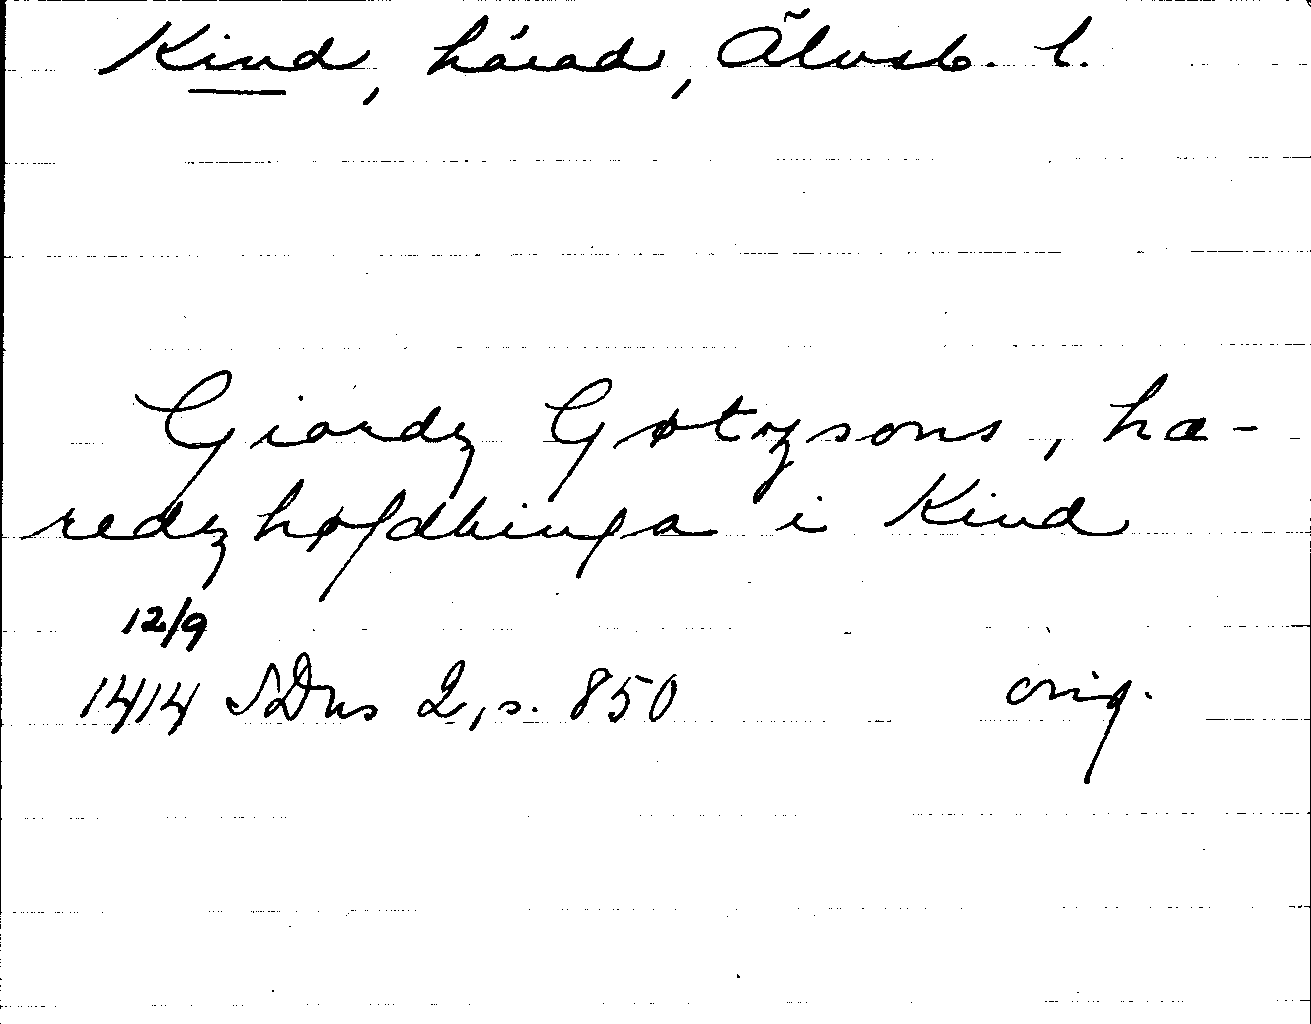 Kind, härad, Älvsb. l.
Giordz Gøtzsons, hæ-
redzhøfdhinga i Kind
12/9
1414 SDns 2, s. 850 orig.